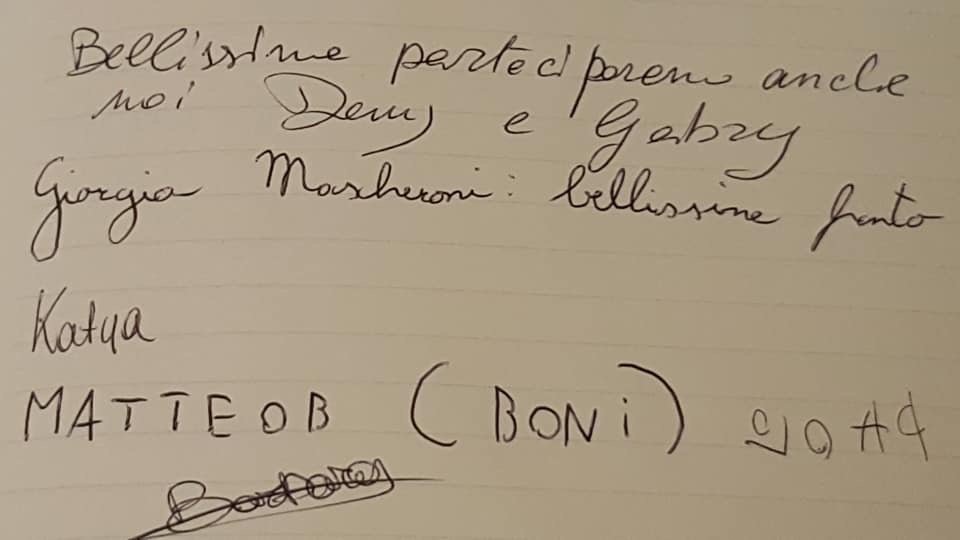 Bellissime parteciperemo anche
noi Demy e Gabry
Giorgia Mascheroni: bellissime
Katya
MATTEO B (BONi)